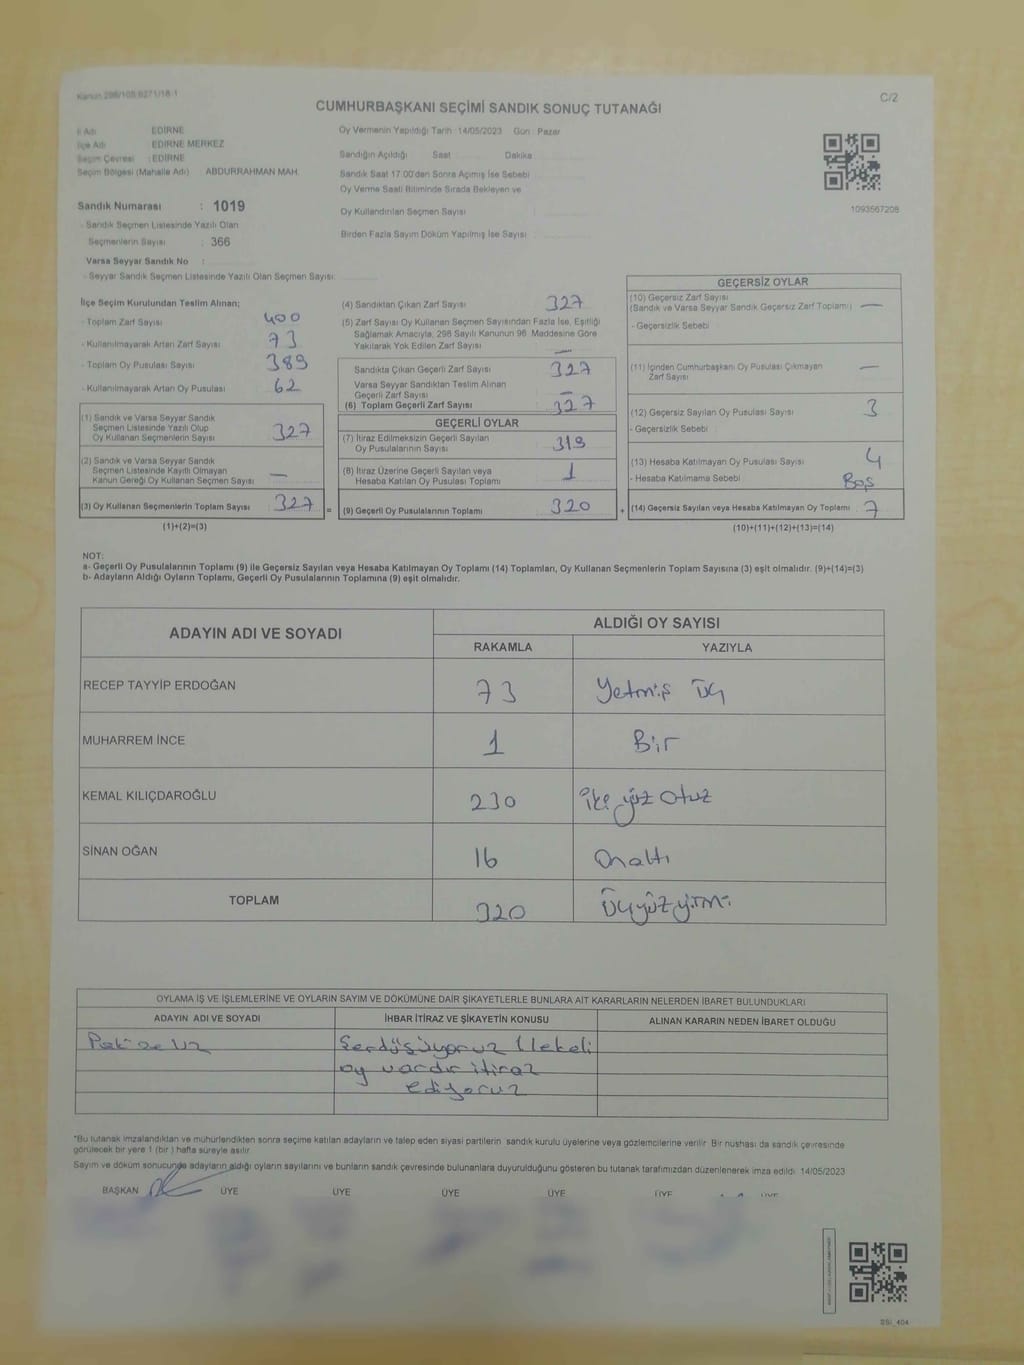 Kanun 298/108 6271/18-1
C/2
CUMHURBAŞKANI SEÇİMİ SANDIK SONUÇ TUTANAĞI
İl Adı EDİRNE
İlçe Adı EDİRNE MERKEZ
Seçim Çevresi : EDİRNE
Seçim Bölgesi (Mahalle Adı) ABDURRAHMAN MAH.
Sandık Numarası : 1019
- Sandık Seçmen Listesinde Yazılı Olan
Seçmenlerin Sayısı : 366
Varsa Seyyar Sandık No :
- Seyyar Sandık Seçmen Listesinde Yazılı Olan Seçmen Sayısı
Oy Vermenin Yapıldığı Tarih 14/05/2023 Gün : Pazar
Sandığın Açıldığı Saat Dakika
Sandık Saat 17:00'den Sonra Açımış İse Sebebi
Oy Verme Saati Bitiminde Sırada Bekleyen ve
Oy Kullandırılan Seçmen Sayısı
Birden Fazla Sayım Döküm Yapılmış İse Sayısı
1093567208
İlçe Seçim Kurulundan Teslim Alınan;
- Toplam Zarf Sayısı 400
- Kullanılmayarak Artan Zarf Sayısı 73
- Toplam Oy Pusulası Sayısı 389
- Kullanılmayarak Artan Oy Pusulası 62
(1) Sandık ve Varsa Seyyar Sandık
Seçmen Listesinde Yazılı Olup
Oy Kullanan Seçmenlerin Sayısı 327
(2) Sandık ve Varsa Seyyar Sandık
Seçmen Listesinde Kayıtlı Olmayan
Kanun Gereği Oy Kullanan Seçmen Sayısı —
(3) Oy Kullanan Seçmenlerin Toplam Sayısı 327 =
(1)+(2)=(3)
(4) Sandıktan Çıkan Zarf Sayısı 327
(5) Zarf Sayısı Oy Kullanan Seçmen Sayısından Fazla İse, Eşitliği
Sağlamak Amacıyla, 298 Sayılı Kanunun 96. Maddesine Göre
Yakılarak Yok Edilen Zarf Sayısı —
Sandıkta Çıkan Geçerli Zarf Sayısı 327
Varsa Seyyar Sandıktan Teslim Alınan
Geçerli Zarf Sayısı —
(6) Toplam Geçerli Zarf Sayısı 327
GEÇERLİ OYLAR
(7) İtiraz Edilmeksizin Geçerli Sayılan
Oy Pusulalarının Sayısı 319
(8) İtiraz Üzerine Geçerli Sayılan veya
Hesaba Katılan Oy Pusulası Toplamı 1
(9) Geçerli Oy Pusulalarının Toplamı 320 +
GEÇERSİZ OYLAR
(10) Geçersiz Zarf Sayısı
(Sandık ve Varsa Seyyar Sandık Geçersiz Zarf Toplamı) —
- Geçersizlik Sebebi
(11) İçinden Cumhurbaşkanı Oy Pusulası Çıkmayan
Zarf Sayısı —
(12) Geçersiz Sayılan Oy Pusulası Sayısı 3
- Geçersizlik Sebebi
(13) Hesaba Katılmayan Oy Pusulası Sayısı 4
- Hesaba Katılmama Sebebi Boş
(14) Geçersiz Sayılan veya Hesaba Katılmayan Oy Toplamı 7
(10)+(11)+(12)+(13)=(14)
NOT:
a- Geçerli Oy Pusulalarının Toplamı (9) ile Geçersiz Sayılan veya Hesaba Katılmayan Oy Toplamı (14) Toplamları, Oy Kullanan Seçmenlerin Toplam Sayısına (3) eşit olmalıdır. (9)+(14)=(3)
b- Adayların Aldığı Oyların Toplamı, Geçerli Oy Pusulalarının Toplamına (9) eşit olmalıdır.
ADAYIN ADI VE SOYADI ALDIĞI OY SAYISI
RAKAMLA YAZIYLA
RECEP TAYYİP ERDOĞAN 73 Yetmiş üç
MUHARREM İNCE 1 Bir
KEMAL KILIÇDAROĞLU 230 ikiyüz otuz
SİNAN OĞAN 16 Onaltı
TOPLAM 320 Üçyüzyirmi
OYLAMA İŞ VE İŞLEMLERİNE VE OYLARIN SAYIM VE DÖKÜMÜNE DAİR ŞİKAYETLERLE BUNLARA AİT KARARLARIN NELERDEN İBARET BULUNDUKLARI
ADAYIN ADI VE SOYADI İHBAR İTİRAZ VE ŞİKAYETİN KONUSU ALINAN KARARIN NEDEN İBARET OLDUĞU
Uz 1 lekeli
oy vardır itiraz
ediyoruz
*Bu tutanak imzalandıktan ve mühürlendikten sonra seçime katılan adayların ve talep eden siyasi partilerin sandık kurulu üyelerine veya gözlemcilerine verilir. Bir nüshası da sandık çevresinde
görülecek bir yere 1 (bir ) hafta süreyle asılır.
Sayım ve döküm sonucunda adayların aldığı oyların sayılarını ve bunların sandık çevresinde bulunanlara duyurulduğunu gösteren bu tutanak tarafımızdan düzenlenerek imza edildi. 14/05/2023
BAŞKAN ÜYE ÜYE ÜYE ÜYE ÜYE ÜYE
SSI_404